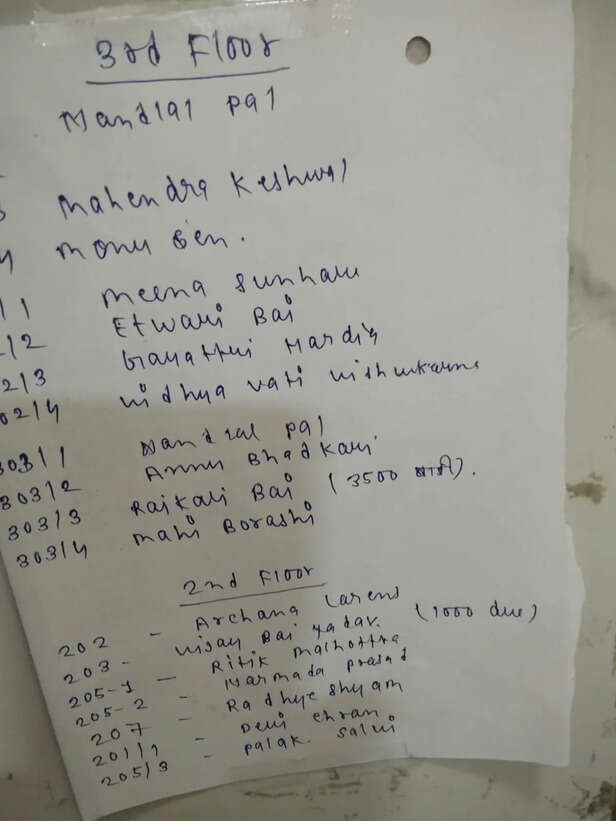 3rd Floor
Nandlal pal
Mahendra Keshwal
monu sen.
11 meena sunhare
2/2 Etwari Bai
02/3 Gayattri Mardiy
02/4 vidhya vati vishwkarma
303/1 Nandlal pal
303/2 Annu Bhadkari
303/3 Rajkali Bai (3500 बाकी).
303/4 mahi Borashi
2nd Floor
202 - Archana
203 - vijay Bai yadav. (1000 due)
205-1 - Ritik malhottra
205-2 - Narmada prasad
207 - Radhye shyam
201/1 - Devi chran
205/3 - palak salvi